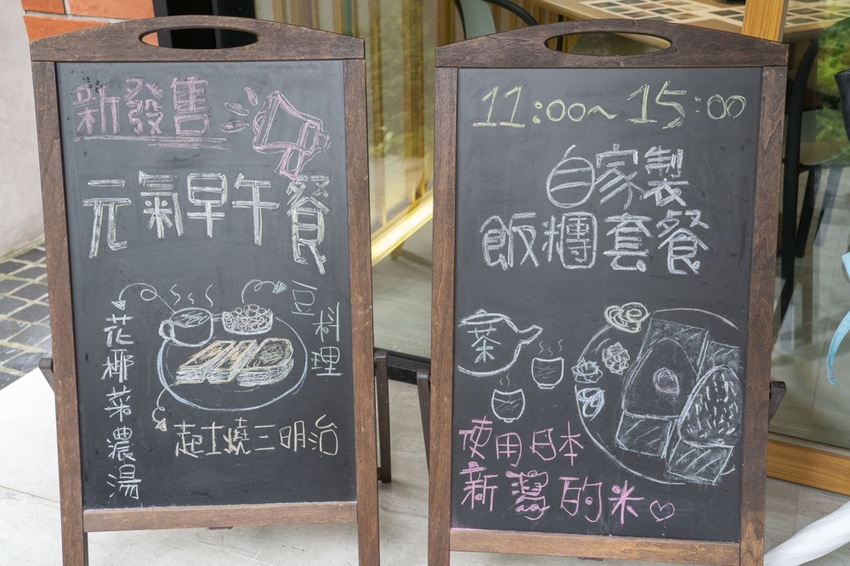 新發售
元氣早午餐
豆料理
花椰菜濃湯
起士燒三明治
11:00~15:00
自家製
飯糰套餐
茶
使用日本
新潟的米♡